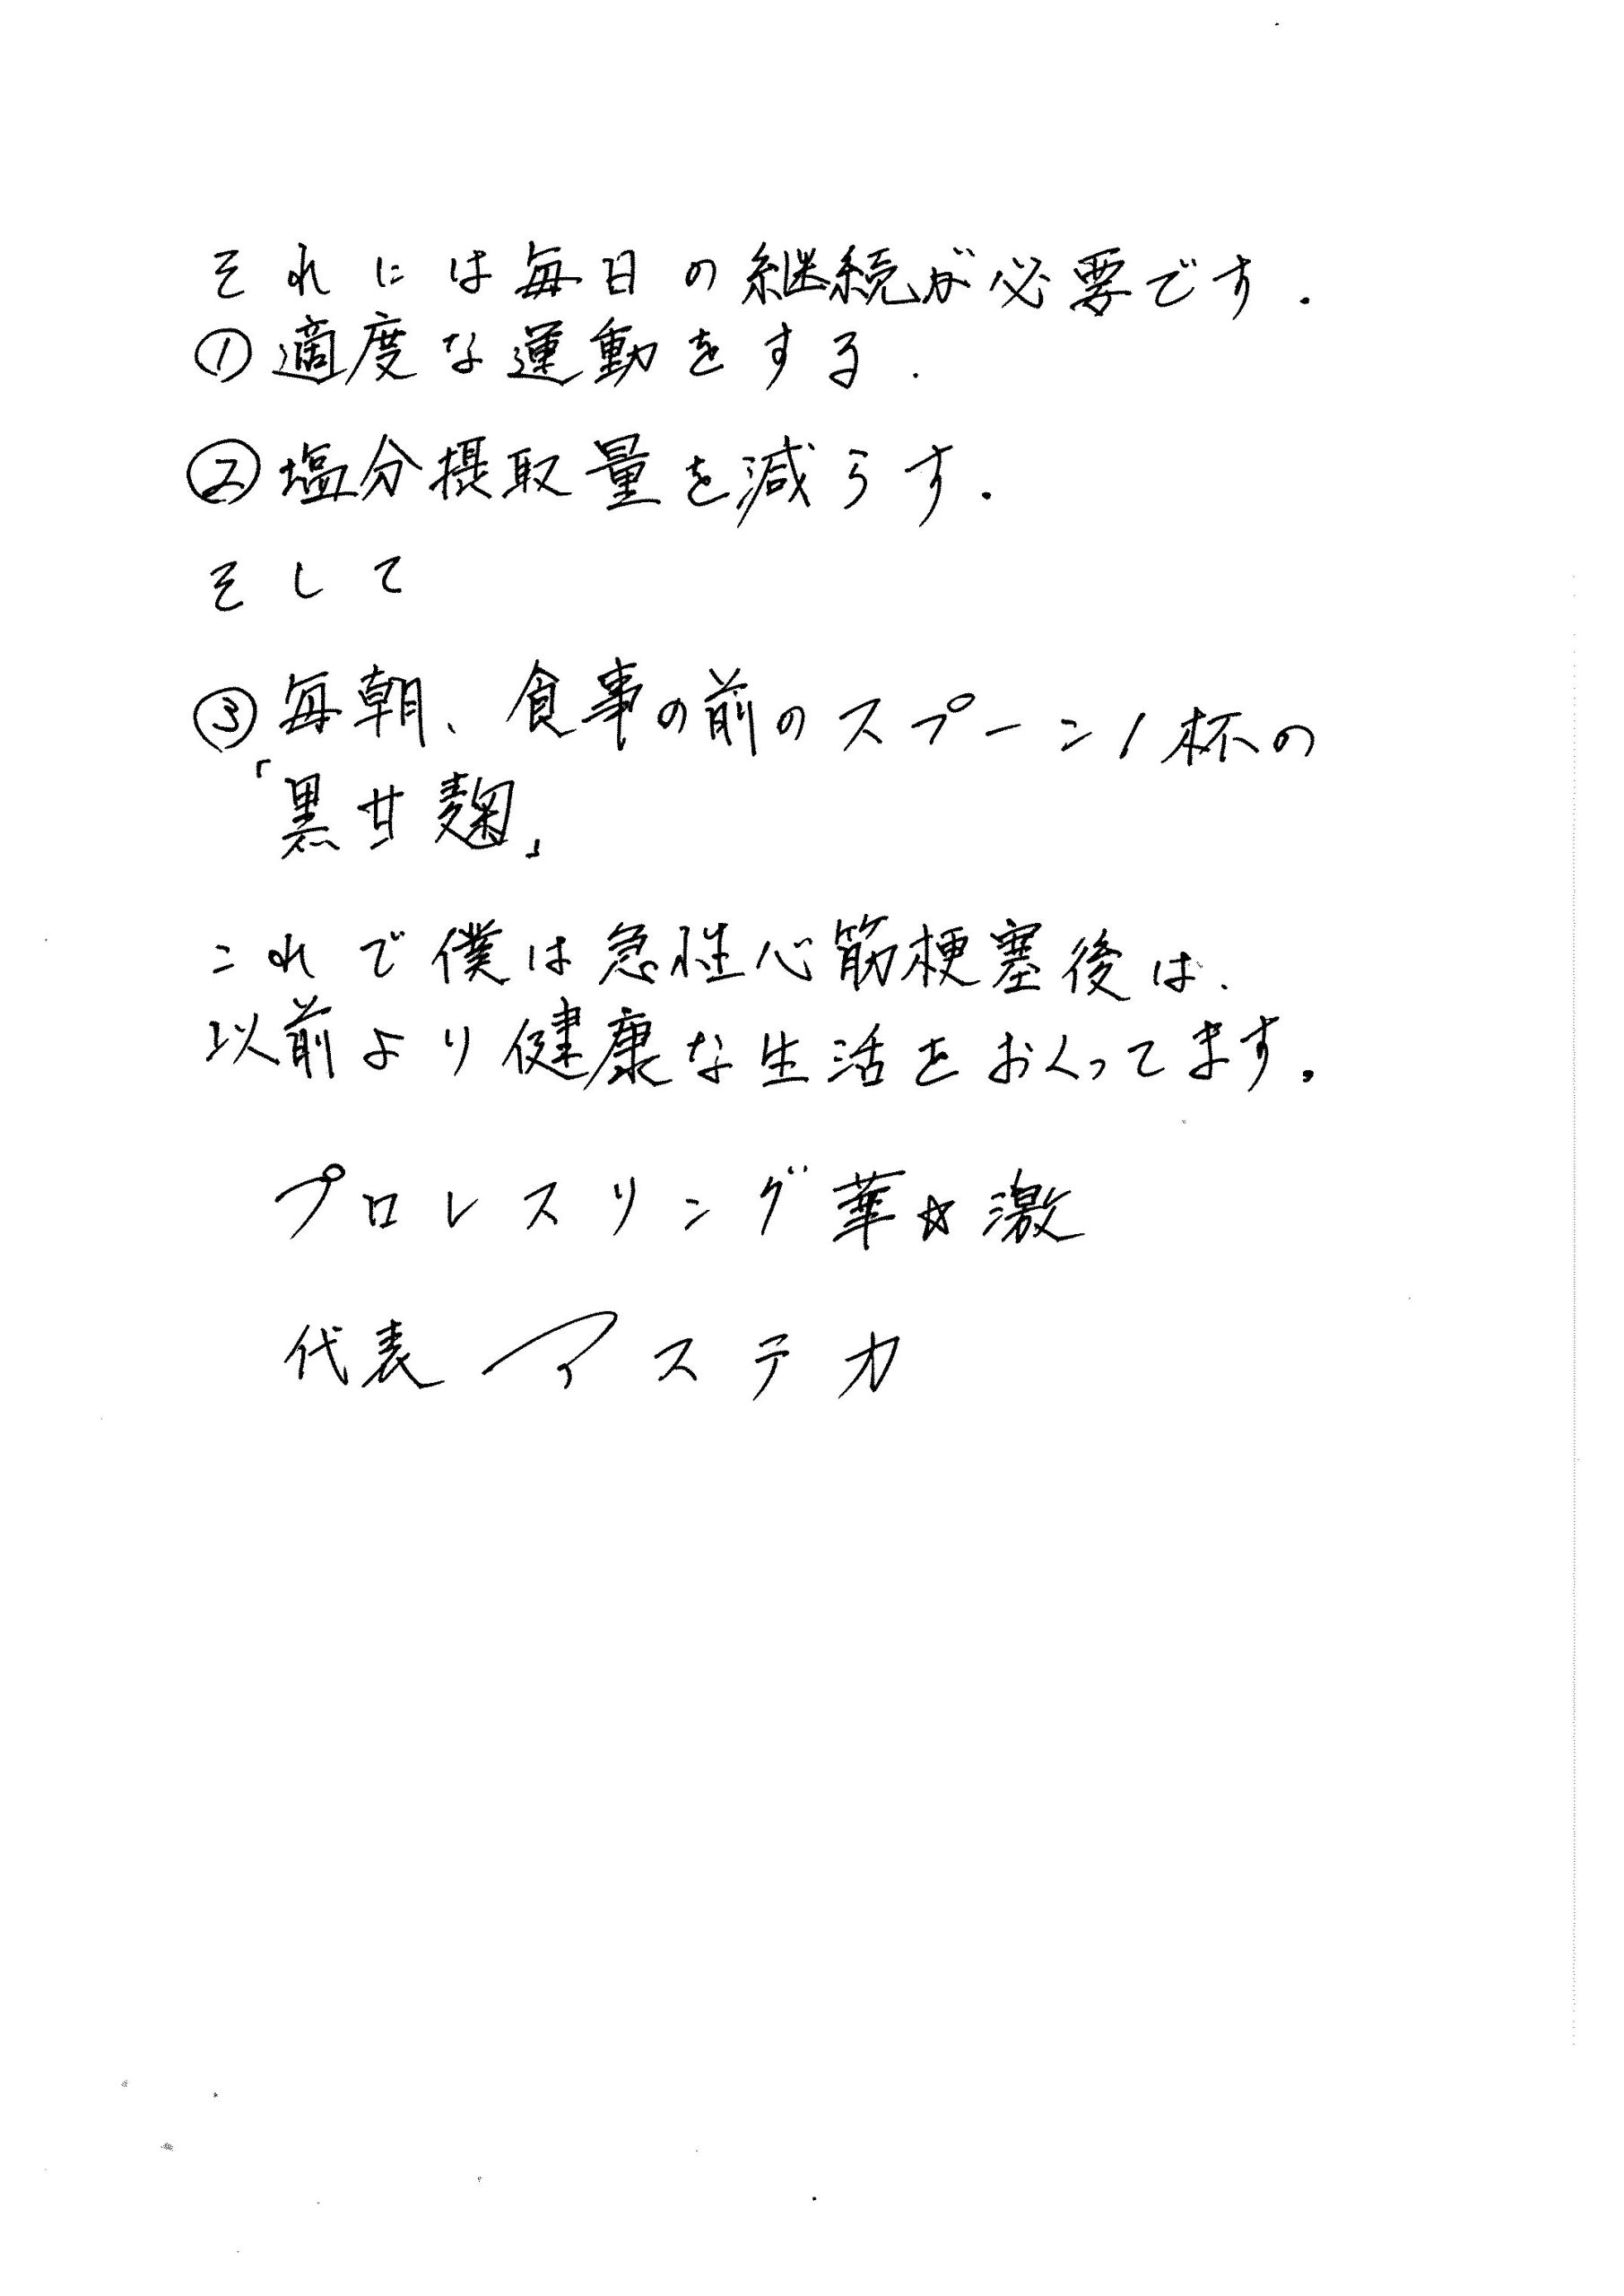 それには毎日の継続が必要です.
①適度な運動をする.
②塩分摂取量を減らす.
そして
③毎朝、食事の前のスプーン1杯の
「黒甘麹」
これで僕は急性心筋梗塞後は、
以前より健康な生活をおくってます.
プロレスリング華☆激
代表 アステカ